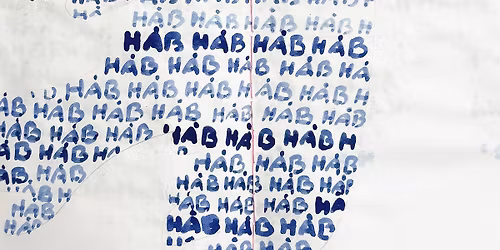 HÁB HÁB HÁB
HÁB HÁB HÁB H
HÁB HÁB HÁB HÁB
HÁB HÁB HÁB HÁB HÁ
HÁB HÁB HÁB HÁB HÁB H
HÁB HÁB HÁB HÁB HÁB HÁB H
HÁB HÁB HÁB HÁB HÁB HÁB H
HÁB HÁB HÁB HÁB HÁB
HÁB HÁB HÁB HÁB HÁB
HÁB HÁB HÁB HÁB HÁ
HÁB HÁB HÁB HÁB
HÁB HÁB